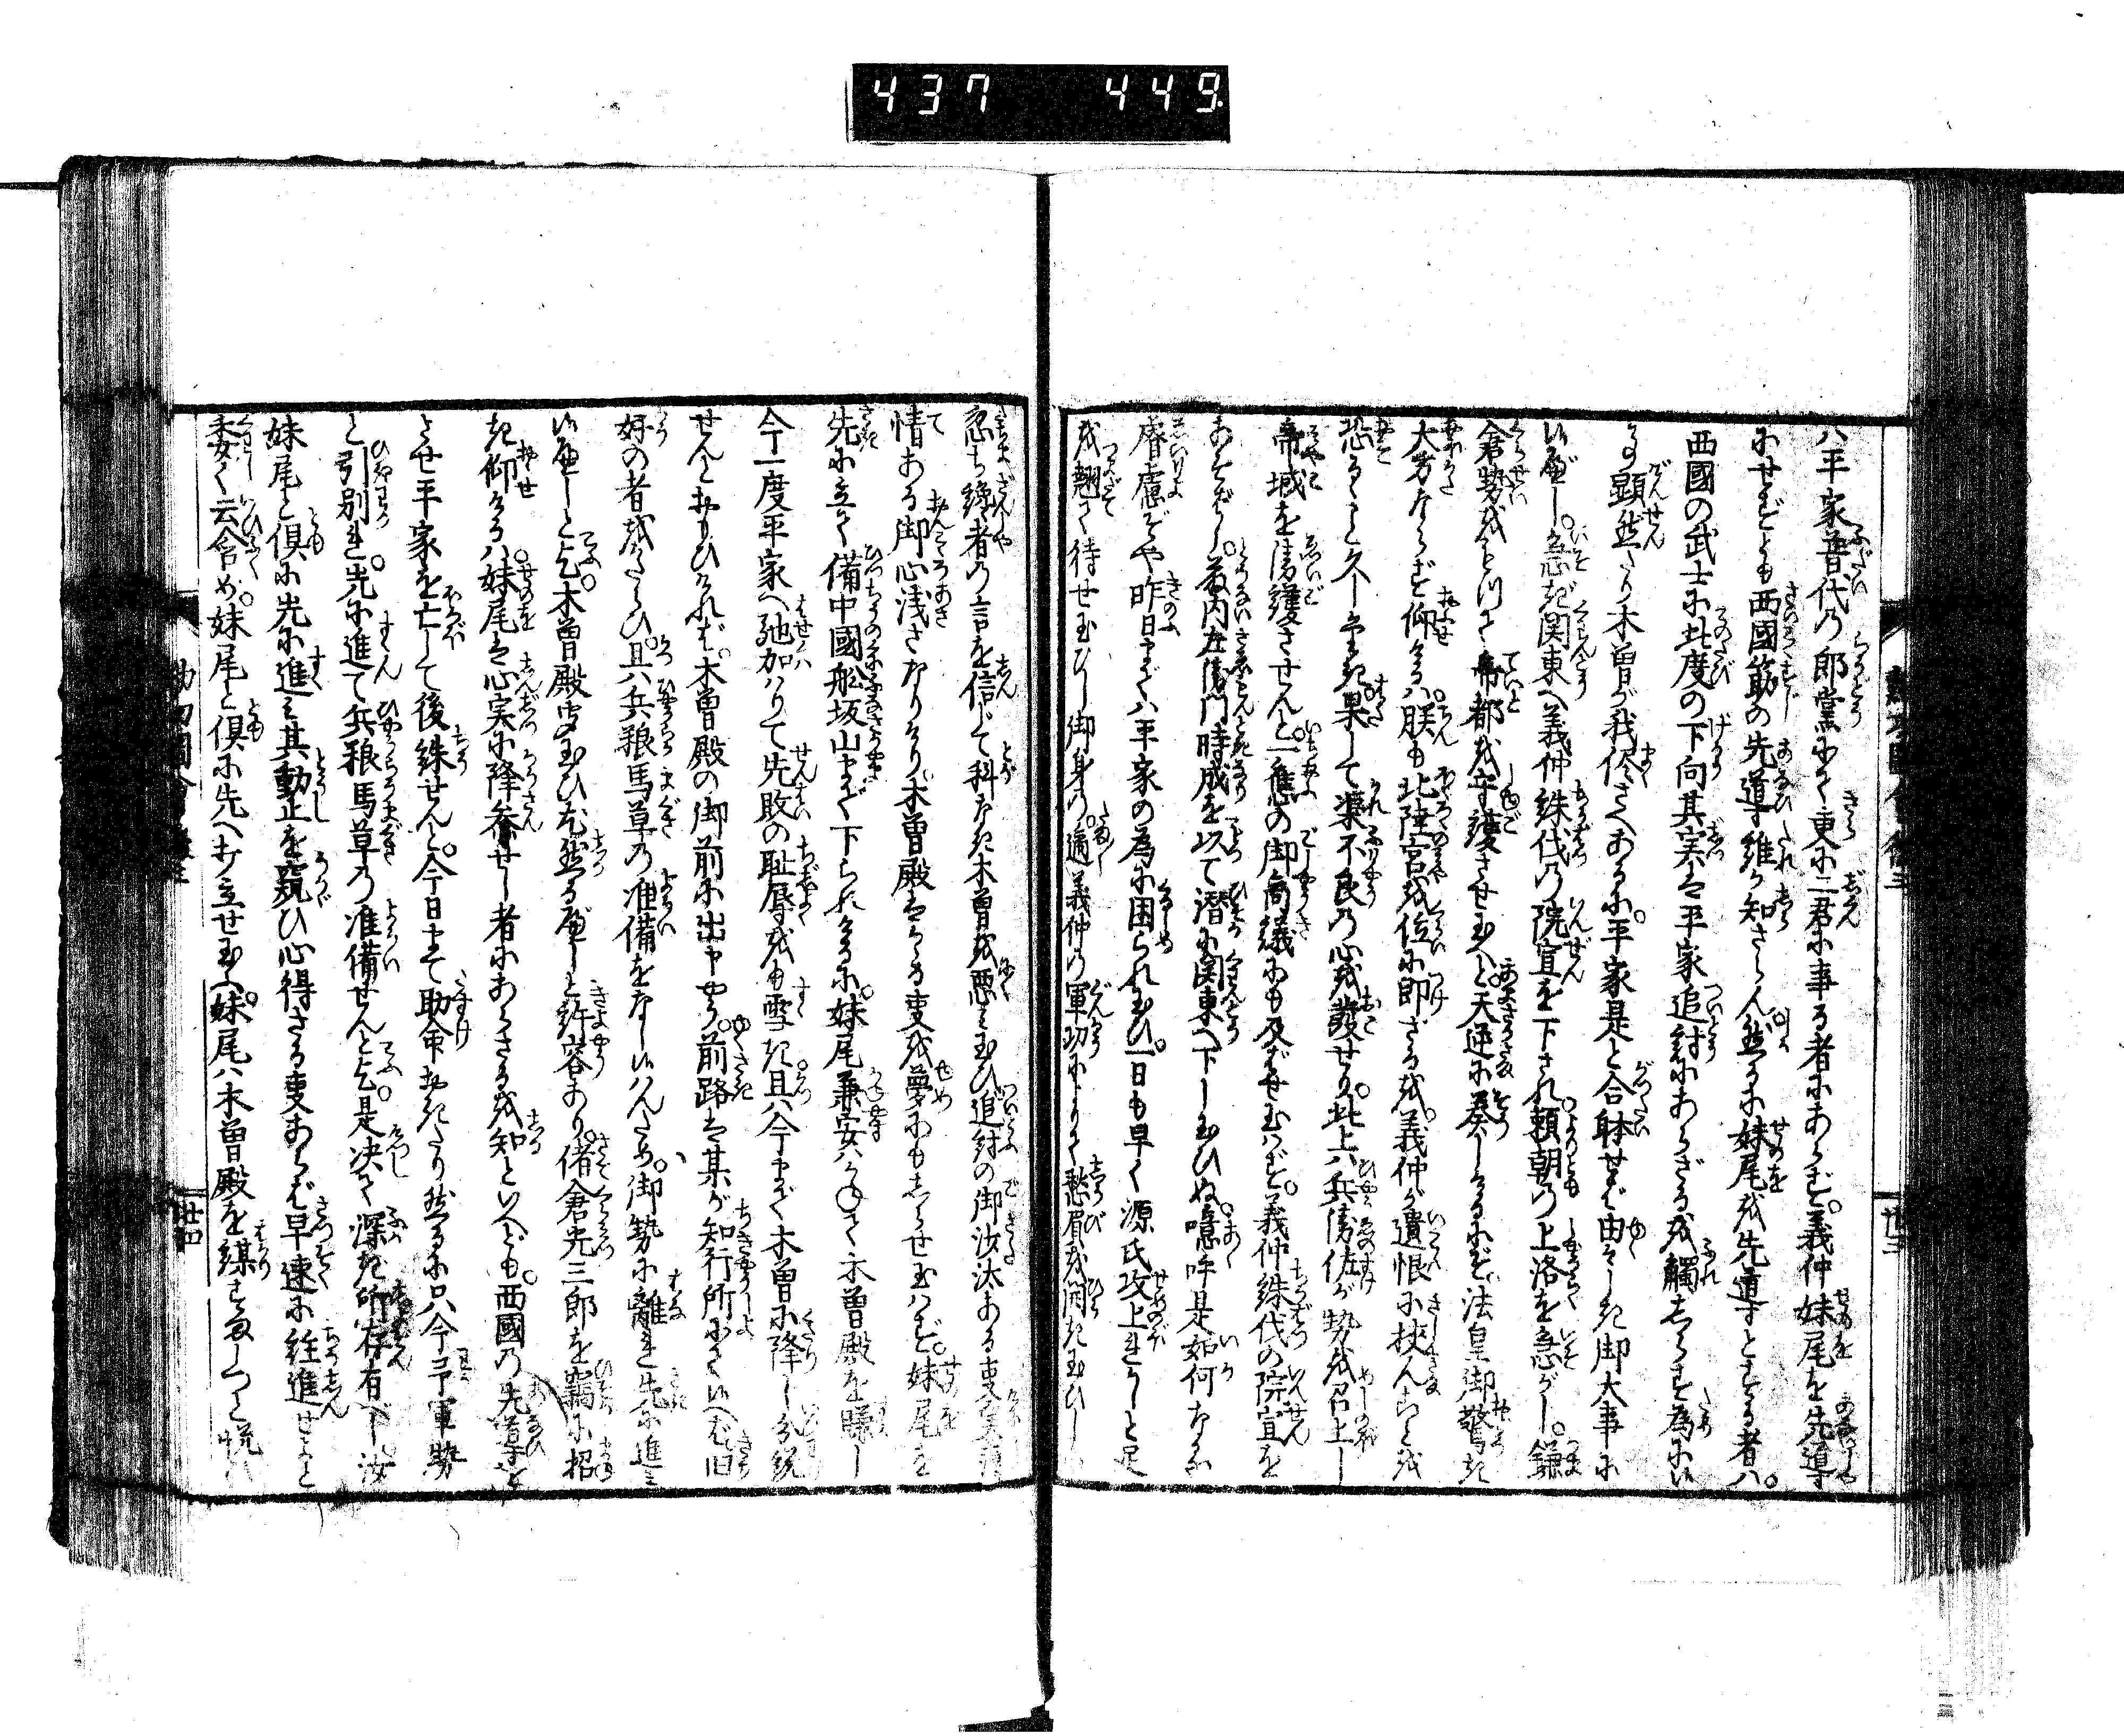 437 449
八平家普代乃郎黨にて更に二君に事る者にあらず。義仲妹尾を先導
にせずとも西國筋の先導誰か知さらん然るに妹尾を先導とする者ハ。
西國の武士に此度の下向其実は平家追討にあらざるを觸しらす為にい
と顕然たり木曽が我侭さへあるに。平家是と合躰せば由々しき御大事に
いべし。急ぎ関東へ義仲誅伐乃院宣を下され頼朝乃上洛を急がし。鎌
倉勢をもつて帝都を守護させ玉へと天逆に奏しけるにぞ法皇御驚き
大方ならず仰けるハ。朕も北陸宮を位に即ざるを。義仲が遺恨に挟んことを
恐るゝこと久しかりき果して渠不良乃心を發せり。此上ハ兵衛佐が勢を召上し
帝城を衛護させんと。一應の御商議にも及ばせ玉はず。義仲誅伐の院宣を
あそばし。藪内左衛門時成を以て潜に関東へ下し玉ひぬ。噫呼是如何なる
睿慮ぞや昨日までハ平家の為に困られ玉ひ。一日も早く源氏攻上れかしと足
を翹て待せ玉ひし御身乃。適義仲乃軍功によりて愁眉を開き玉ひし
忽ち讒者乃言を信じて科なき木曽を悪み玉ひ追討の御沙汰ある事実
情ある御心浅さなりけり。木曽殿はかゝる事を夢にもしらせ玉はず。妹尾を
先に立て備中國舩坂山まで下られけるに。妹尾兼安ハかねて木曽殿を賺し
今一度平家へ馳加はりて先敗の耻辱をも雪ぎ且ハ今まで木曽に降し
せんとおもひければ。木曽殿の御前に出申やう。前路は某が知行所にていへば旧
好の者をかたらひ。且ハ兵粮馬草乃准備をなしいはんため。御勢に離れ先に進み
いべしと乞。木曽殿聞玉ひ尤然るべしと許容あり。偖倉光三郎を竊に招
き仰けるハ。妹尾は心実に降参せし者にあらざるを知といへども。西國乃先導を
させ平家を亡して後誅せんと。今日まで助命おきたり然るに只今予軍勢
と引別れ。先に進て兵粮馬草乃准備せんと乞。是决て深き所存有べし汝
妹尾と倶に先に進み其動止を窺ひ心得ざる事あらば早速に註進せよと
委く云含め。妹尾と倶に先へ打立せ玉ふ。妹尾ハ木曽殿を謀